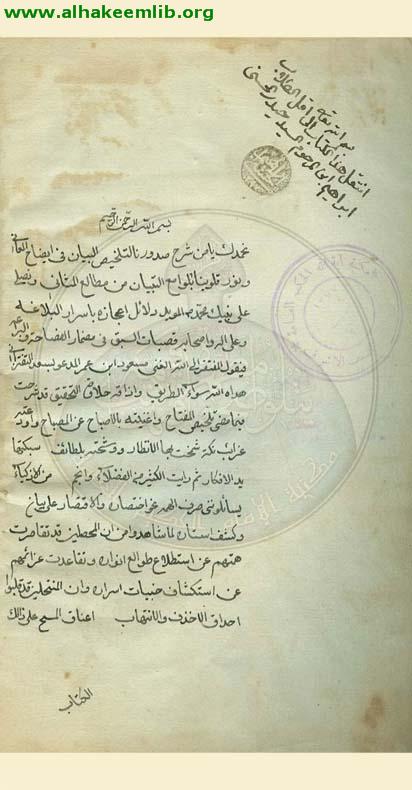 www.alhakeemlib.org
انتقل هذا الكتاب الى اقل الطلاب
ابراهيم ابن المرحوم السيد حيدر الحسني
بسم الله الرحمن الرحيم
نحمدك يا من شرح صدورنا لتلخيص البيان في ايضاح المعاني
ونور قلوبنا بلوامع التبيان من مطالع المثاني ونصلي
على نبيك محمد المويد دلائل اعجازه باسرار البلاغه
وعلى اله واصحابه قصبات السبق في مضمار الفصاحة والبراعه
فيقول المفتقر الى الله الغني مسعود ابن عمر المدعو بسعد التفتزاني
هداه الله سوآء الطريق واذاقه حلاوة التحقيق قد شرحت
فيما مضى تلخيص المفتاح واغنيته بالاصباح عن المصباح واودعته
غرائب نكت سمحت بها الانظار ووشحته بلطائف سبكتها
يد الافكار ثم رايت الكثير من الفضلاء والجم من الاذكياء
يسألونني صرف الهمه نحو اختصاره والاقتصار على بيان
وكشف استاره لما شاهدوا من ان المحصلين قد تقاصرت
هممهم عن استطلاع طوالع انواره وتقاعدت عزائمهم
عن استكشاف خبيات اسراره وان المنتحلين قد قلبوا
احداق الاخذ والانتهاب اعناق المسخ على ذلك
الكتاب